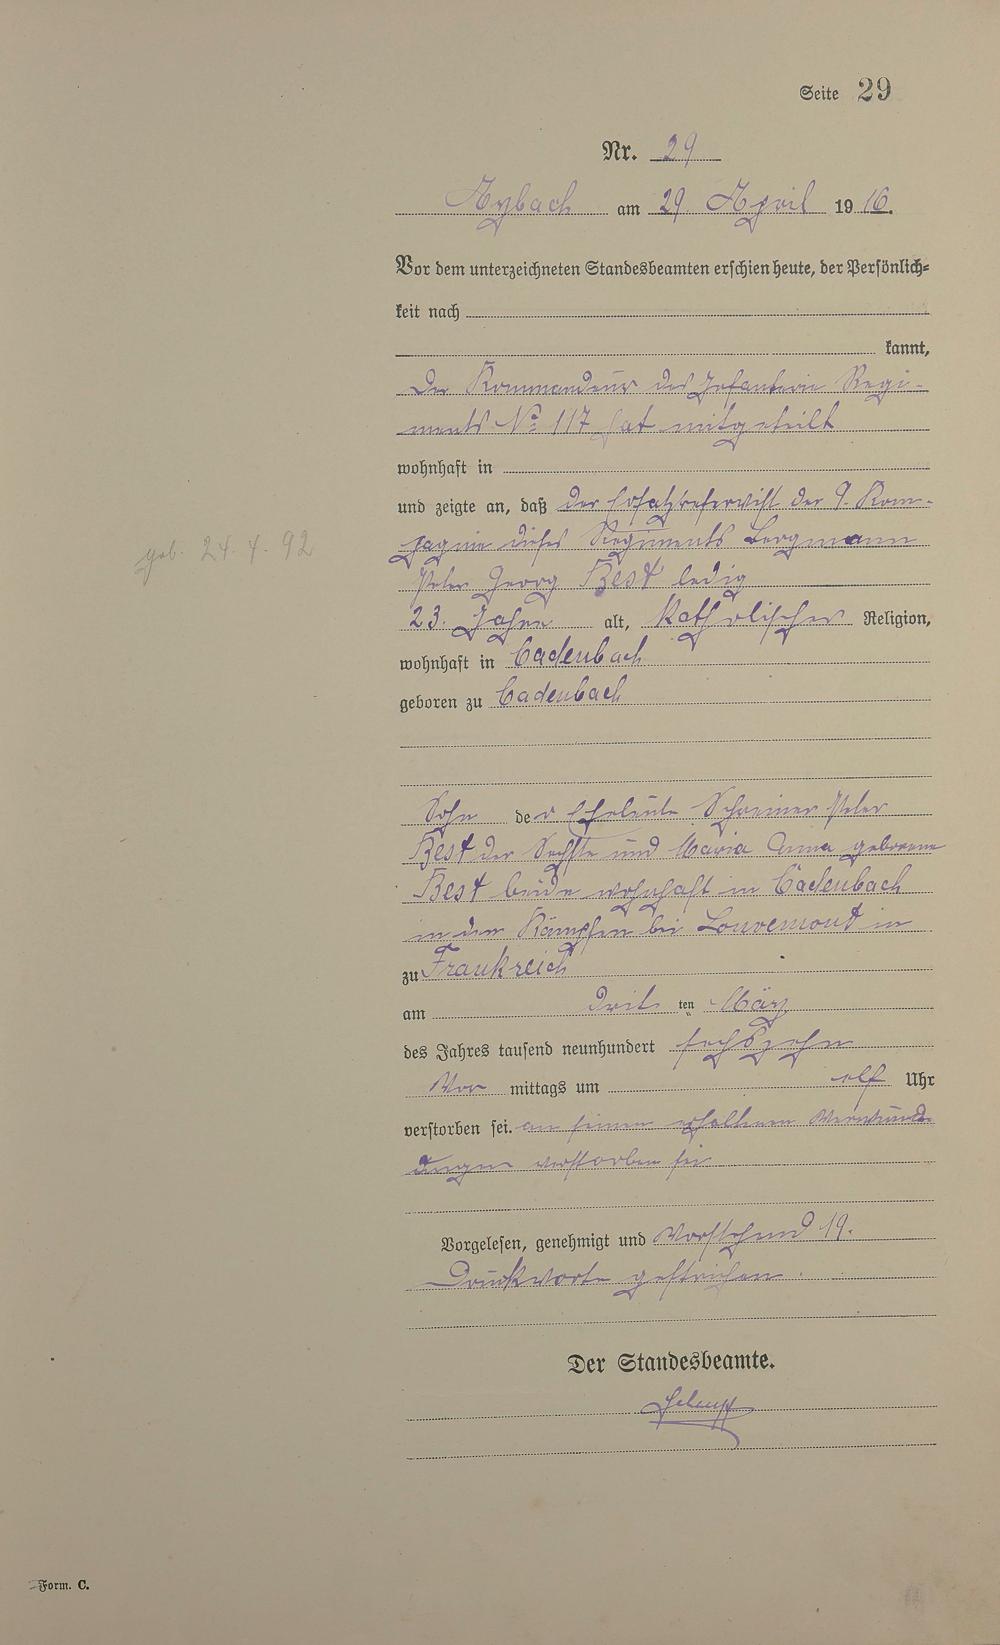 Seite 29
Nr. 29
Arzbach am 29 April 1916.
Vor dem unterzeichneten Standesbeamten erschien heute, der Persönlich=
keit nach
kannt,
Der Kommandeur des Infanterie Regi-
ments No 117 hat mitgeteilt
wohnhaft in
und zeigte an, daß der Ersatzreservist der 9. Kom-
pagnie dieses Regiments Bergmann
geb. 24. 4. 92
Peter Georg Best ledig
23. Jahre alt, Katholischer Religion,
wohnhaft in Cadenbach
geboren zu Cadenbach
Sohn der Eheleute Schreiner Peter
Best der Sechste und Maria Anna geborene
Best beide wohnhaft in Cadenbach
in den Kämpfen bei Louvemont in
zu Frankreich
am drit ten März
des Jahres tausend neunhundert sechszehn
Vor mittags um elf Uhr
verstorben sei. an seinen erhaltenen Verwund-
ungen verstorben sei
Vorgelesen, genehmigt und Vorstehend 19.
Druckworte gestrichen.
Der Standesbeamte.
Form. C.